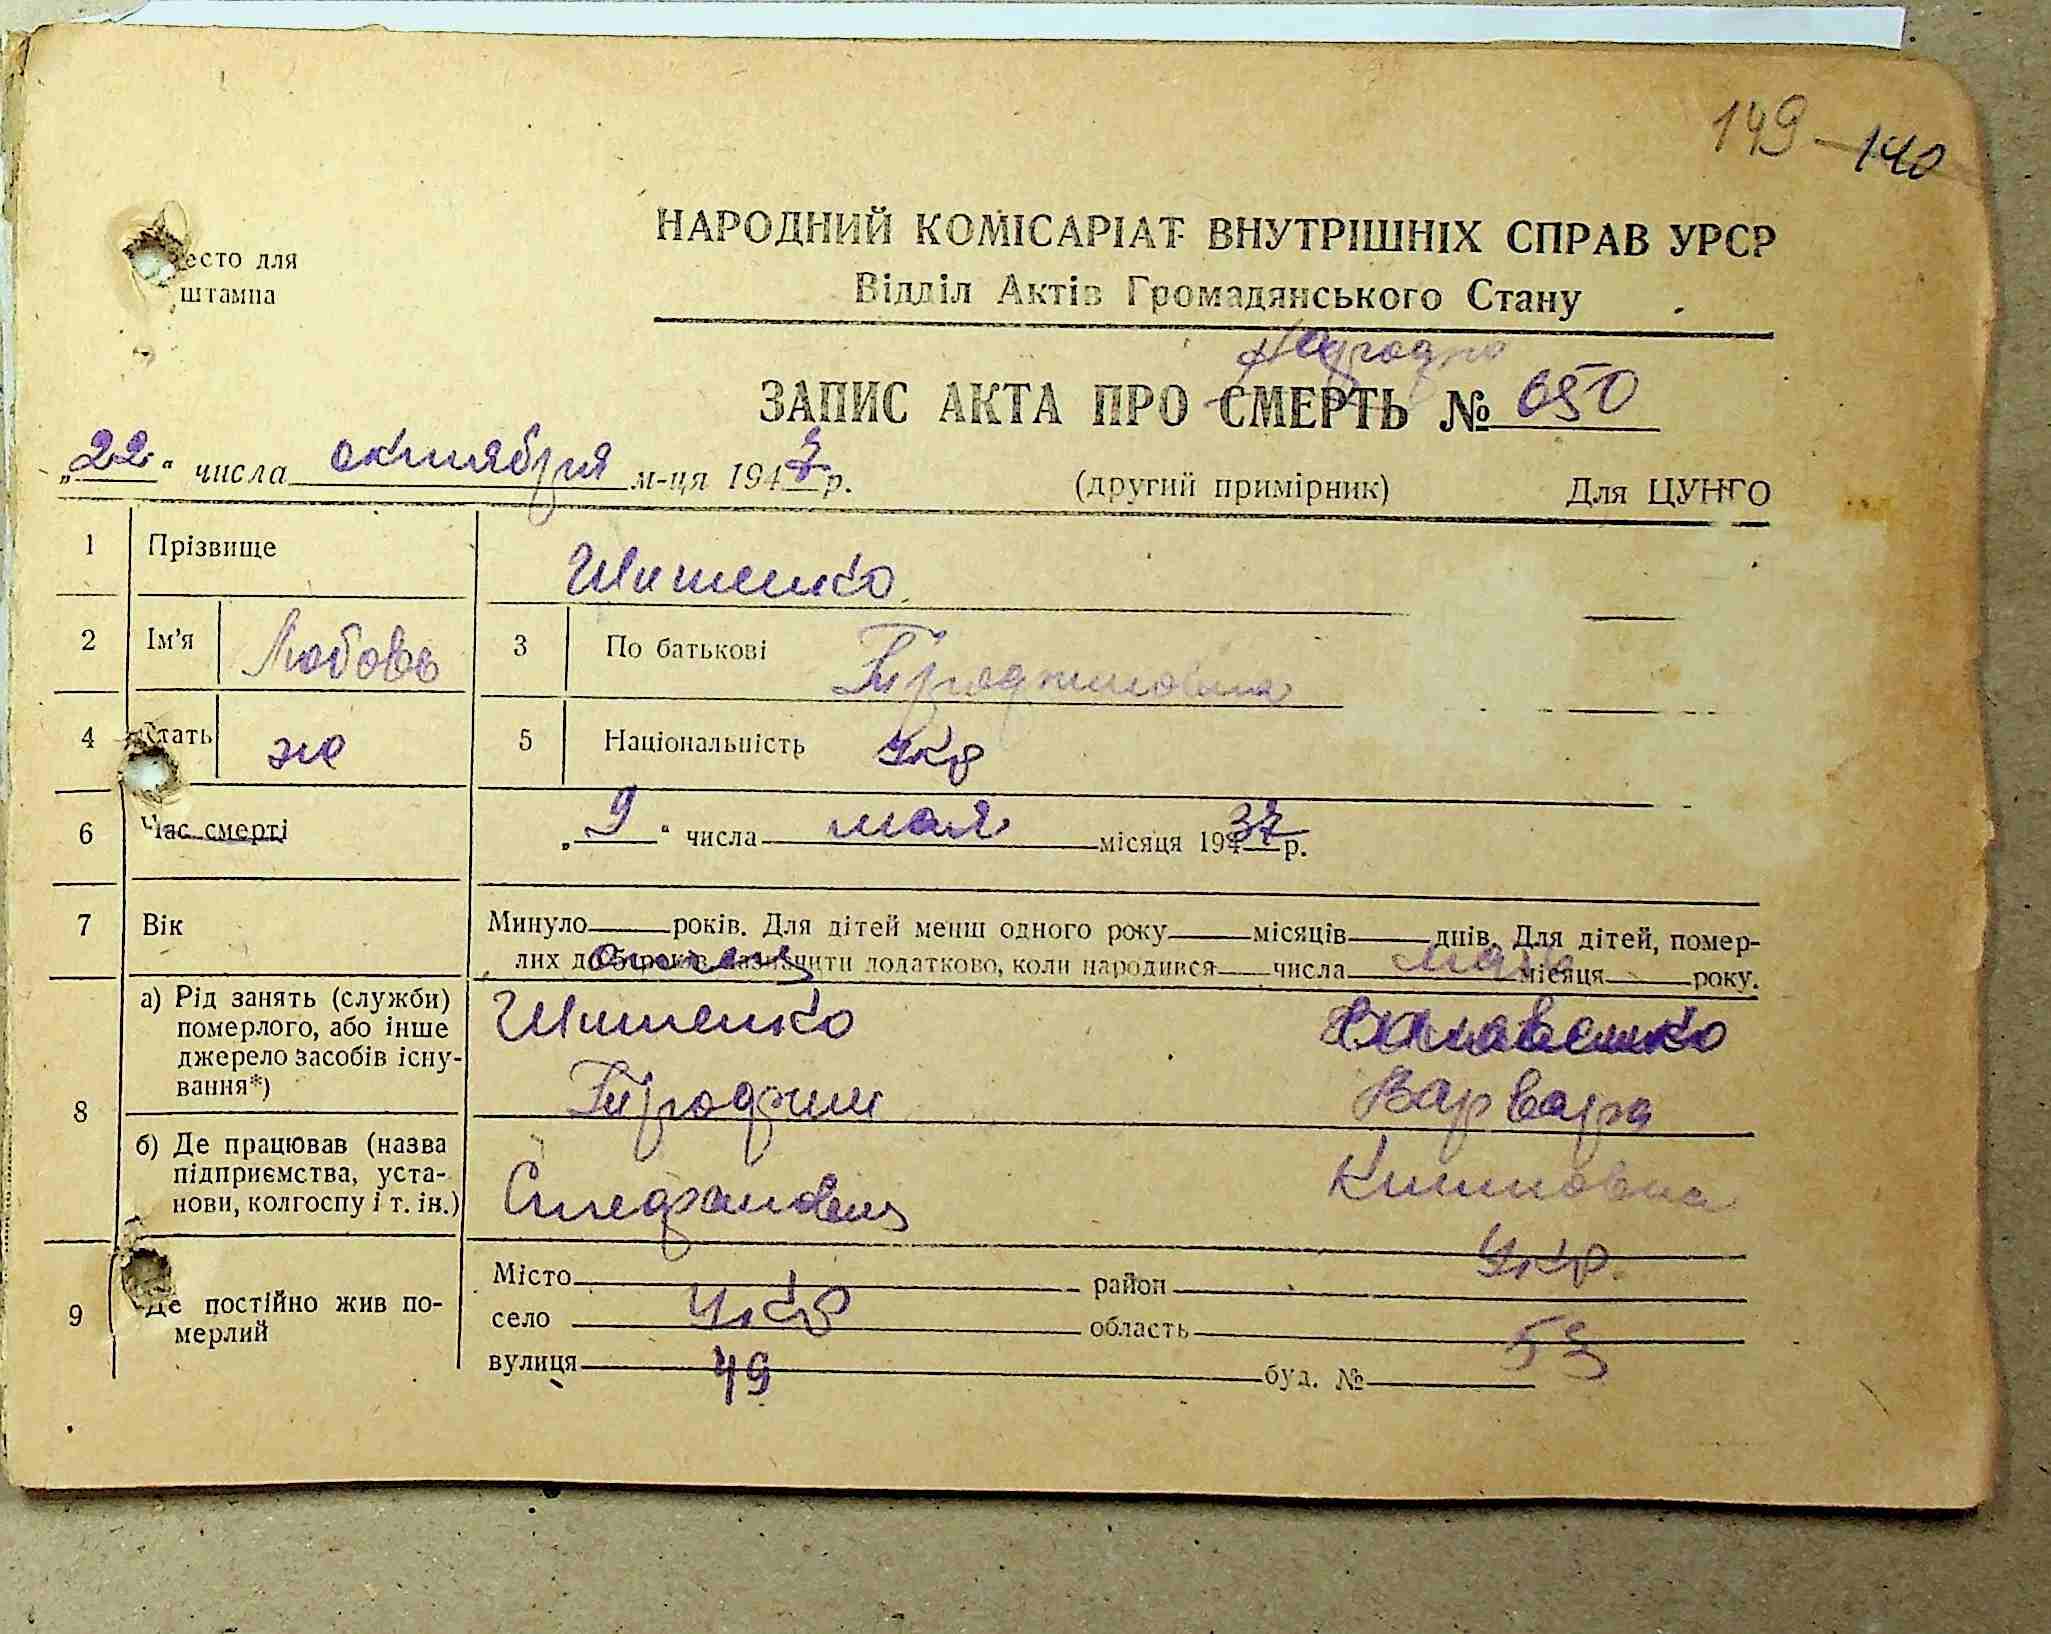 149 - 140
есто для
штампа
НАРОДНИЙ КОМІСАРІАТ ВНУТРІШНІХ СПРАВ УРСР
Відділ Актів Громадянського Стану
ЗАПИС АКТА ПРО СМЕРТЬ № 650
„22“ числа октября м-ця 194 р.
(другий примірник) Для ЦУНГО
1 Прізвище Шитенко
2 Ім'я Любовь 3 По батькові
4 Стать ж 5 Національність Укр
6 Час смерті „9“ числа мая місяця 1937 р.
7 Вік Минуло років. Для дітей менш одного року місяців днів. Для дітей, помер-
лих до зазначити додатково, коли народився числа місяця року.
отец мать
8 а) Рід занять (служби)
померлого, або інше
джерело засобів існу-
вання*)
Шитенко
Варвара
б) Де працював (назва
підприємства, уста-
нови, колгоспу і т. ін.)
9 Де постійно жив по-
мерлий
Місто район
Укр.
село Укр область
53
вулиця 49 буд. №